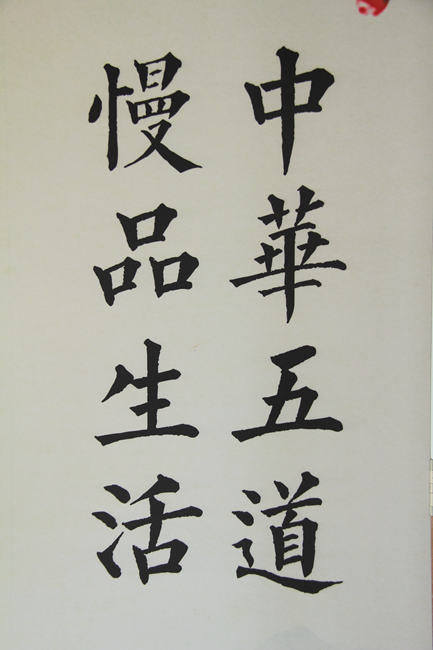 中華五道
慢品生活